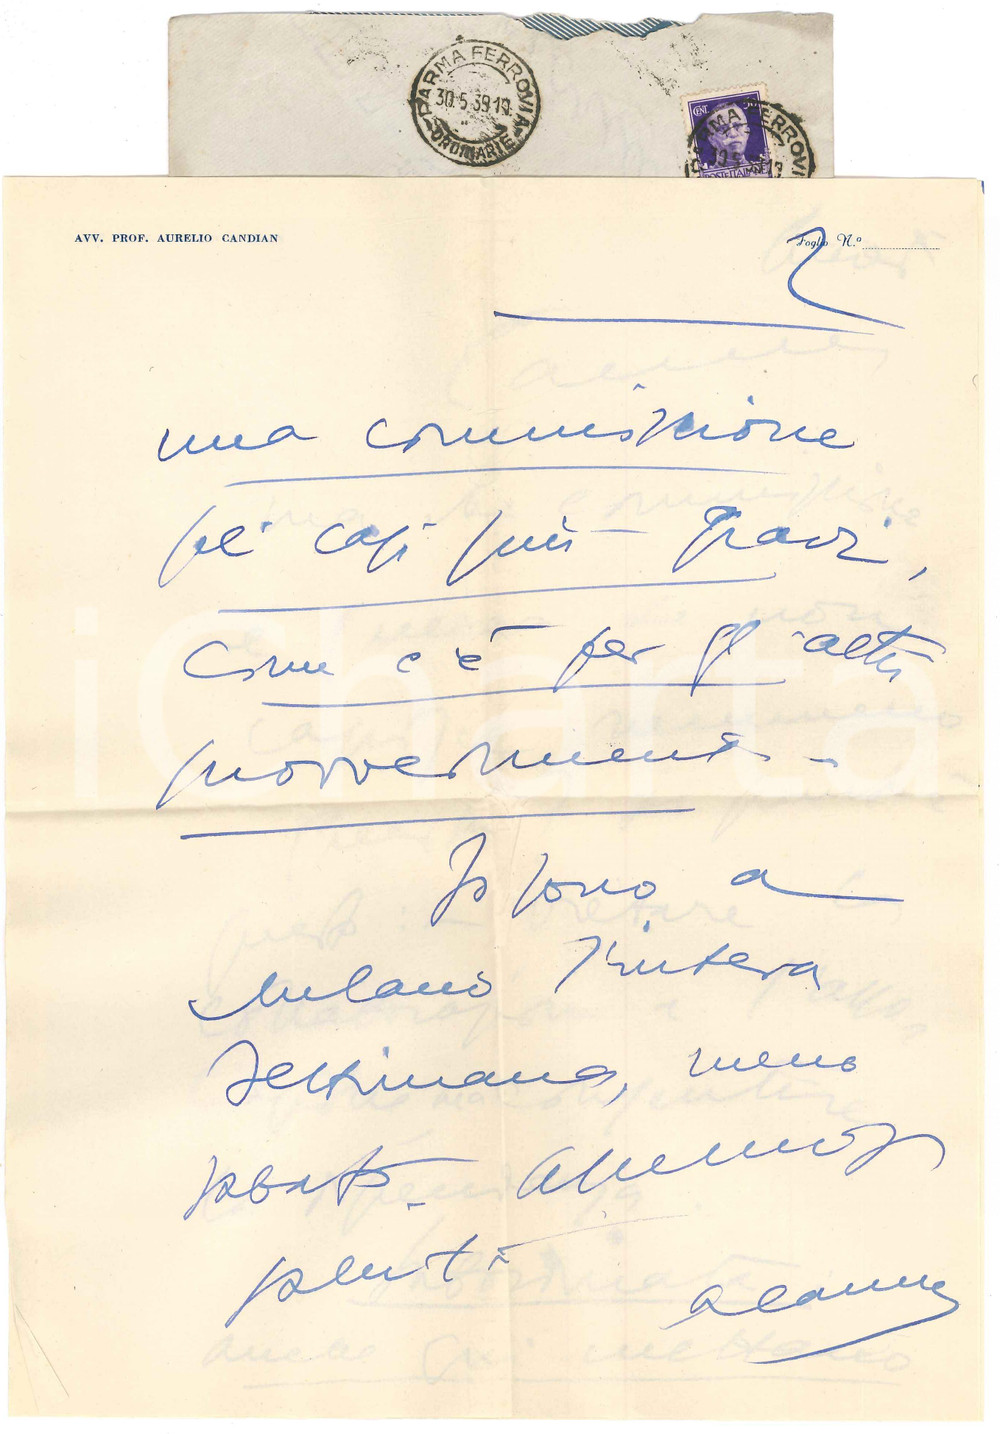 PARMA FERROVIA
30.5.39.19
ORDINARIE
CENT. 50
POSTE ITALIANE
AVV. PROF. AURELIO CANDIAN
Foglio N.º
2
una commissione
pei casi più gravi,
come c'è per gli altri
provvedimenti.
Io sono a
Milano l'intera
settimana, meno
sabato.
saluti
iCharta